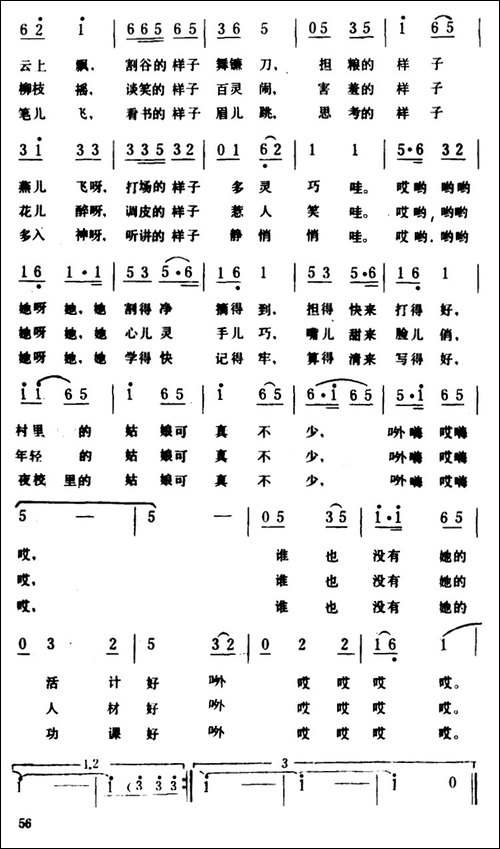 6 2 i | 6 6 5 6 5 | 3 6 5 | 0 5 3 5 | i 6 5
云上 飘，割谷的 样子 舞镰 刀，担 粮的 样 子
柳枝 摇，谈笑的 样子 百灵 闹，害 羞的 样 子
笔儿 飞，看书的 样子 眉儿 跳，思 考的 样 子
3 i 3 3 | 3 3 5 3 2 | 0 1 6 2 | 1 1 | 5·6 3 2
燕儿 飞呀，打场的 样子 多 灵 巧 哇。哎哟 哟哟
花儿 醉呀，调皮的 样子 惹 人 笑 哇。哎哟，哟哟
多入 神呀，听讲的 样子 静 悄 悄 哇。哎哟，哟哟
1 6 1·1 | 5 3 5·6 | 1 6 1 | 5 3 5·6 | 1 6 1
她呀 她，她 割得 净 摘得 到，担得 快来 打得 好，
她呀 她，她 心儿 灵 手儿 巧，嘴儿 甜来 脸儿 俏，
她呀 她，她 学得 快 记得 牢，算得 清来 写得 好，
i i 6 5 | i 6 5 | i 6 5 | 6·i 6 5 | 5·i 6 5
村里 的 姑 娘可 真 不 少，咿嗨 哎嗨
年轻 的 姑 娘可 真 不 少，咿嗨 哎嗨
夜校 里的 姑 娘可 真 不 少，咿嗨 哎嗨
5 — | 5 — | 0 5 3 5 | i·i 6 5
哎，谁 也 没有 她的
哎，谁 也 没有 她的
哎，谁 也 没有 她的
0 3 2 | 5 3 2 | 0 2 2 | 1 6 | 1
活 计 好 咿 哎 哎 哎 哎。
人 材 好 咿 哎 哎 哎 哎。
功 课 好 咿 哎 哎 哎 哎。
1.2 3
i — | i (3 3 3 :| i — | i — | i 0
56